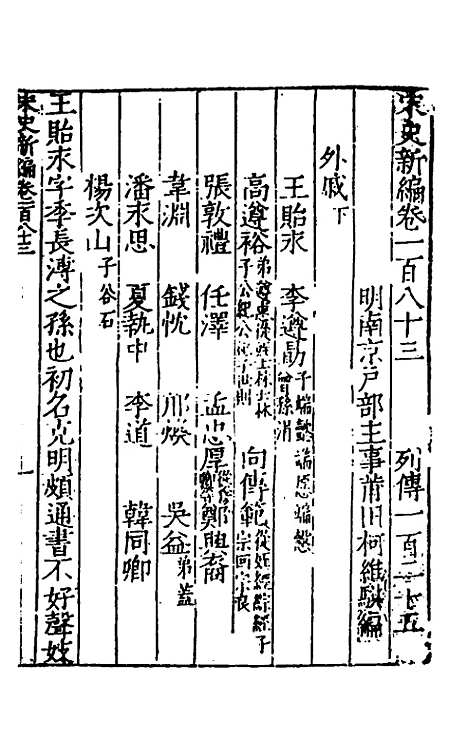 宋史新編卷一百八十三 列傳一百二十五
明南京戶部主事莆田柯維騏編
外戚下
王貽永 李遵勗子端懿 端愿 端慤 曾孫
高遵裕弟遵惠 從姪士林 士林子公紀 公紀子世則 向傳範從姪經 綜 經子宗回 宗良
張敦禮 任澤 孟忠厚 鄭興裔
韋淵 錢忱 邢煥 吳益弟蓋
潘永思 夏執中 李道 韓同卿
楊次山子谷石
王貽永字季長溥之孫也初名克明頗通書不好聲妓
宋史新編卷一百八十三